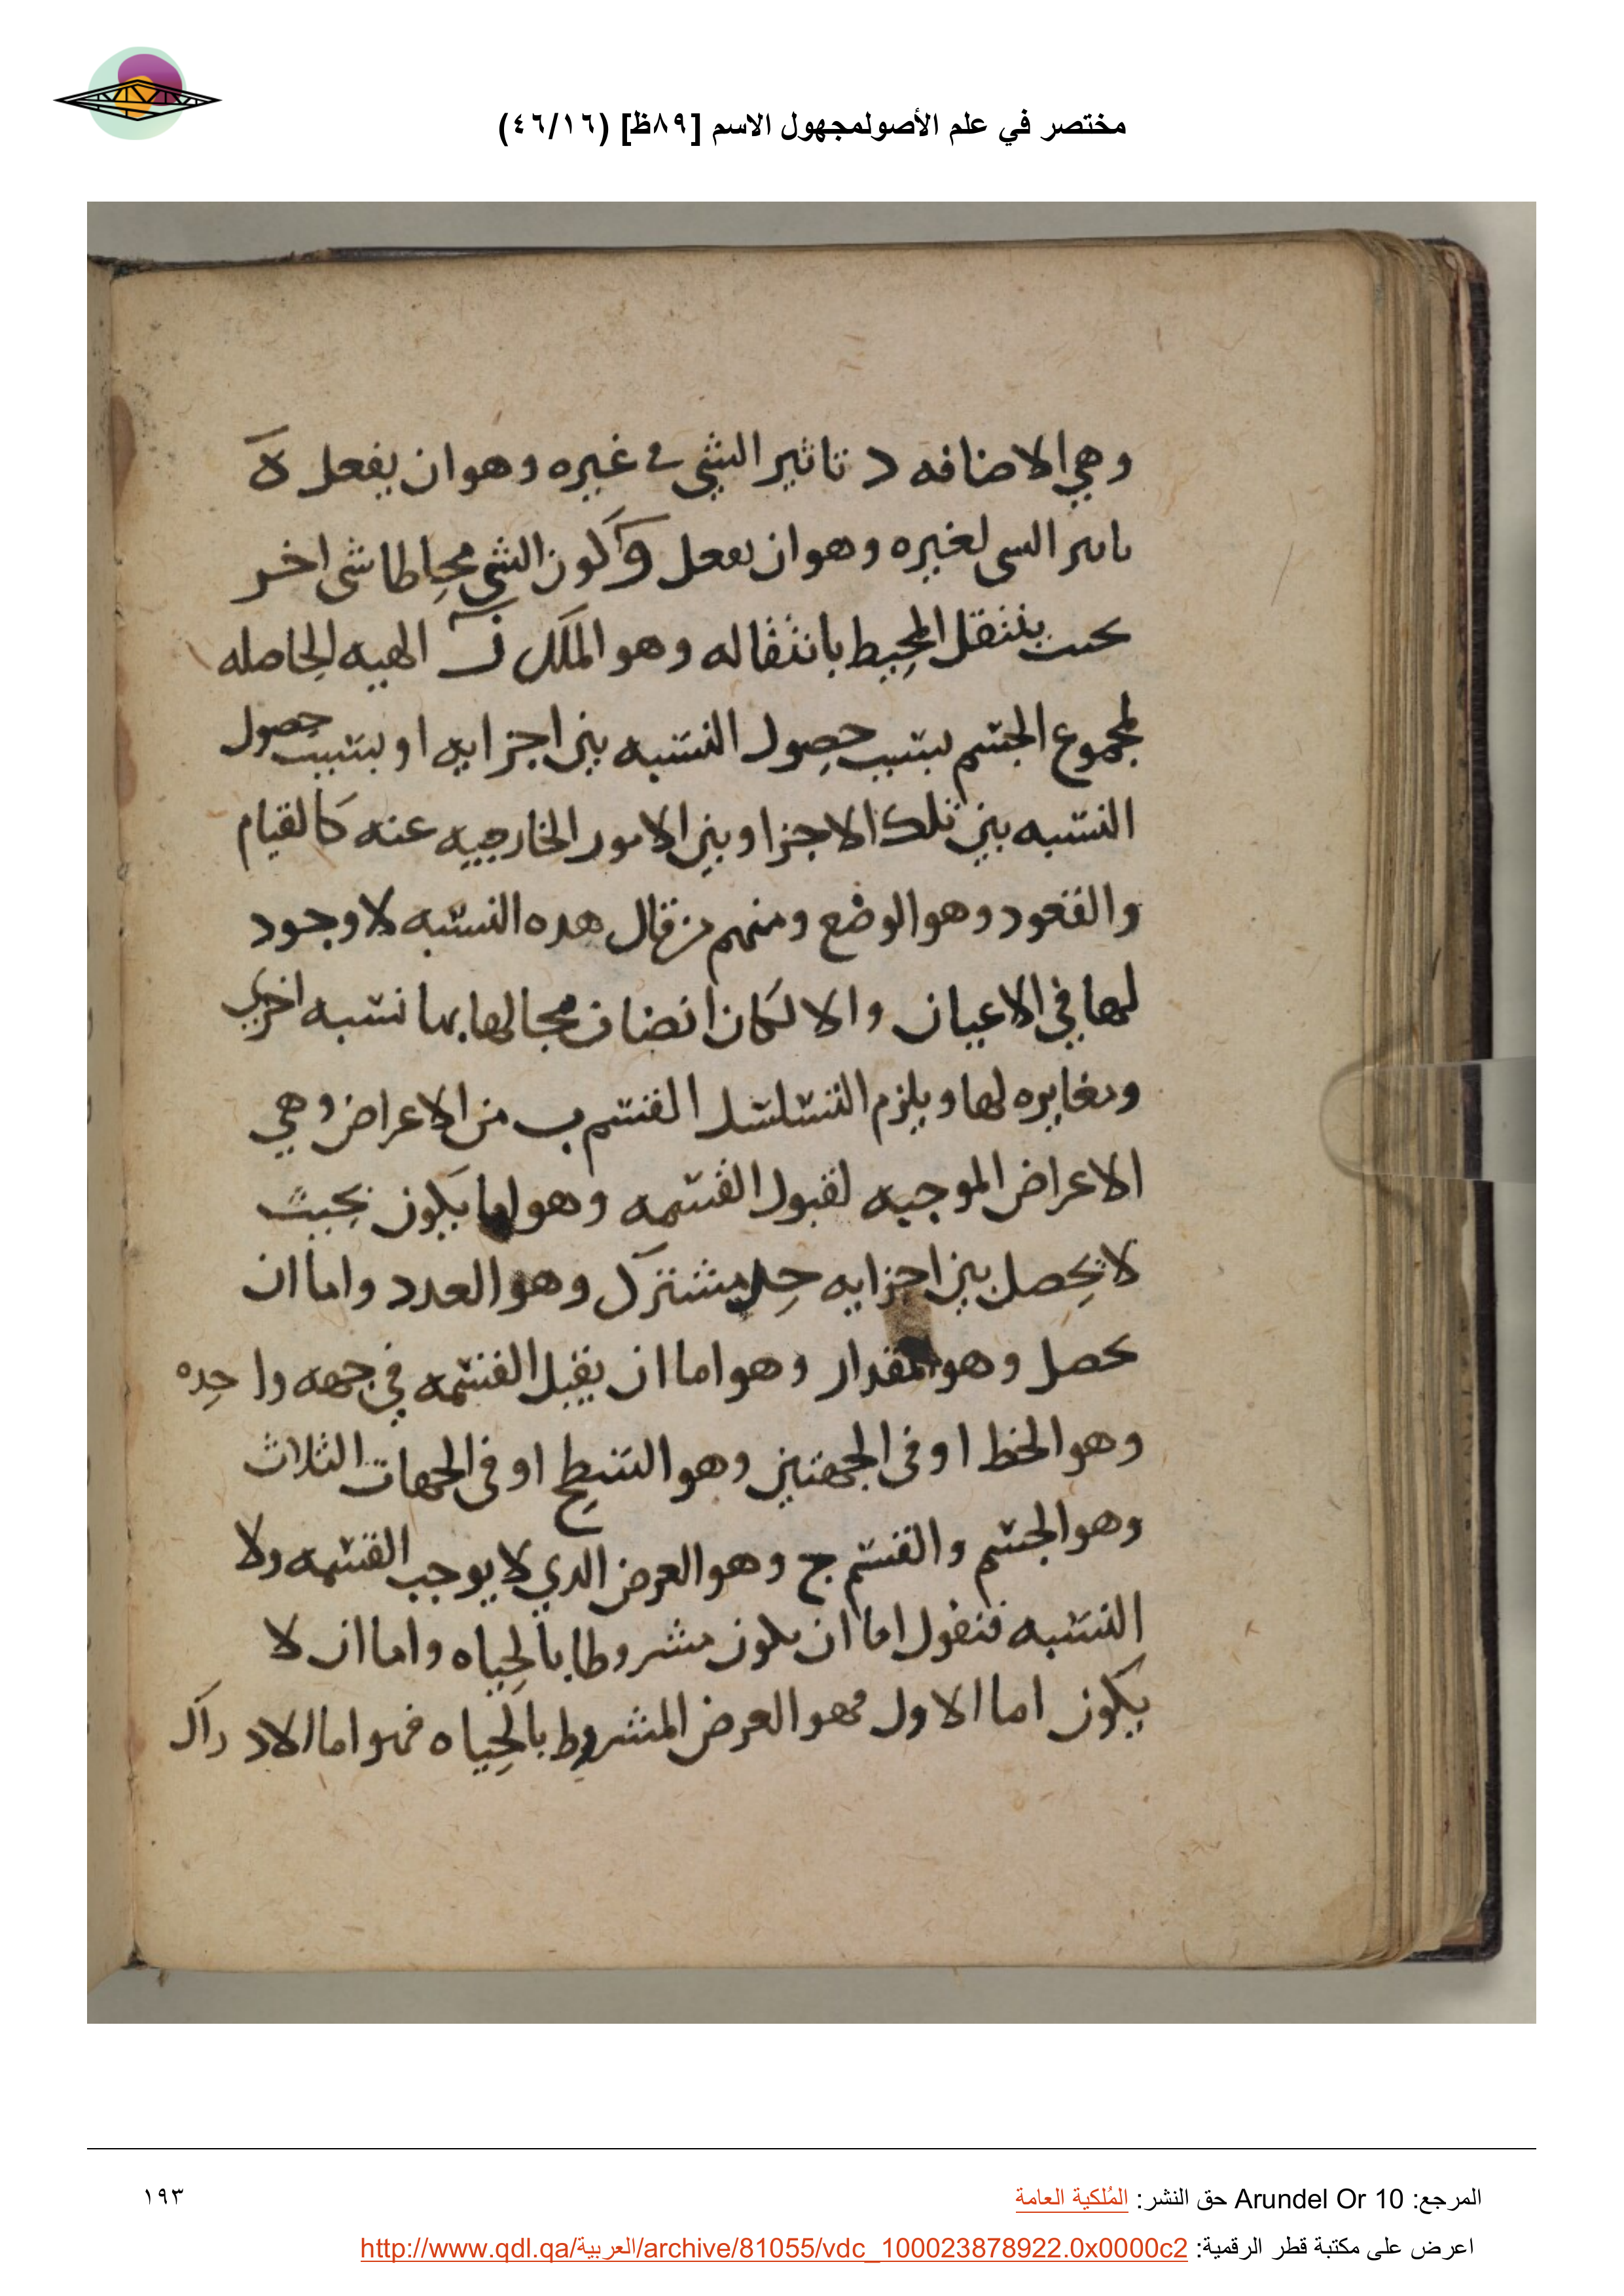 مختصر في علم الأصولمجهول الاسم [٨٩ظ] (٤٦/١٦)
وهي الاضافه د تاثير الشي في غيره وهو ان يفعل ه
تاثر الشي لغيره وهو ان يفعل و كون الشي محاطا شى اخر
بحيث ينتقل المحيط بانتقاله وهو الملك ز الهيه الحاصله
لمجموع الجسم بسبب حصول النسبه بين اجزايه او بسبب حصول
النسبه بين تلك الاجزا وبين الامور الخارجيه عنه كالقيام
والقعود وهو الوضع ومنهم من قال هده النسبه لا وجود
لها في الاعيان والا لكان اتضاف مجالها بها نسبه اخرى
ومغايره لها ويلزم التسلسل القسم ب من الاعراض وهي
الاعراض الموجبه لقبول القسمه وهو اما يكون بحيث
لا يحصل بين اجزايه حد مشترك وهو العدد واما ان
يحصل وهو المقدار وهو اما ان يقبل القسمه في جهه واحده
وهو الخط او في الجهتين وهو السطح او في الجهات الثلاث
وهو الجسم والقسم ج وهو العرض الدي لا يوجب القسمه ولا
النسبه فنقول اما ان يكون مشروطا بالحياه واما ان لا
يكون اما الاول فهو العرض المشروط بالحياه فهو اما الادراك
المرجع: Arundel Or 10 حق النشر: المُلكية العامة
١٩٣
اعرض على مكتبة قطر الرقمية: http://www.qdl.qa/العربية/archive/81055/vdc_100023878922.0x0000c2